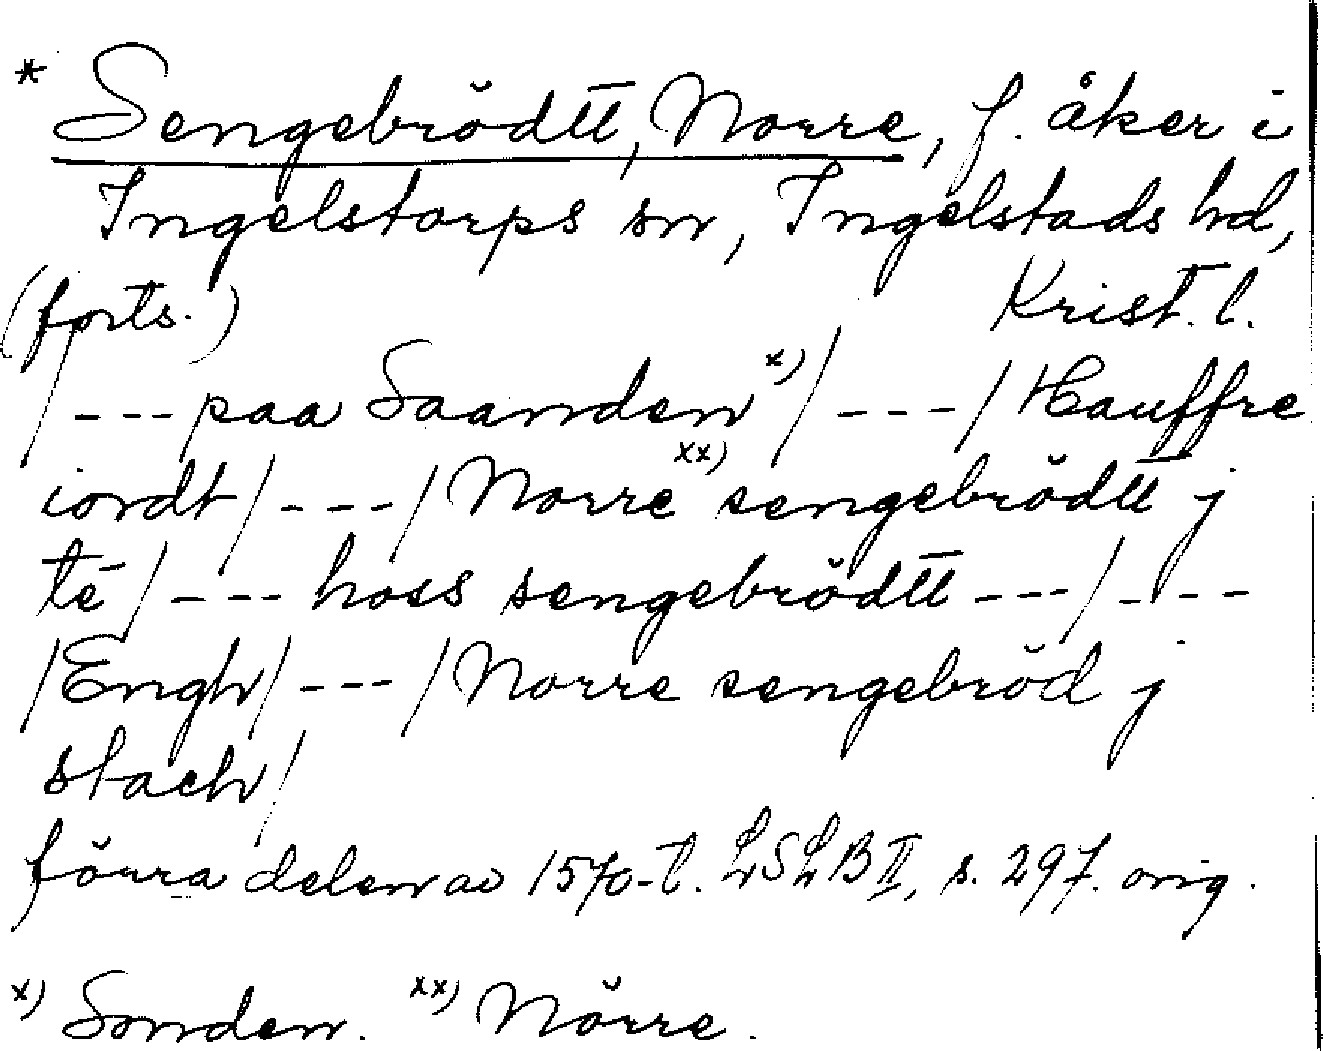 * Sengebrödtt, Norre, f. åker i
Ingelstorps sn, Ingelstads hd,
(forts.) Krist. l.
/ --- paa Saanden x) / --- / Hauffre
iordt / --- / Norre xx) sengebrödtt j
te / --- hoss sengebrödtt --- / ---
/ Engh / --- / Norre sengebröd j
stach /
förra delen av 1570-t. LSLB II, s. 297. orig.
x) Sonden. xx) Nörre.